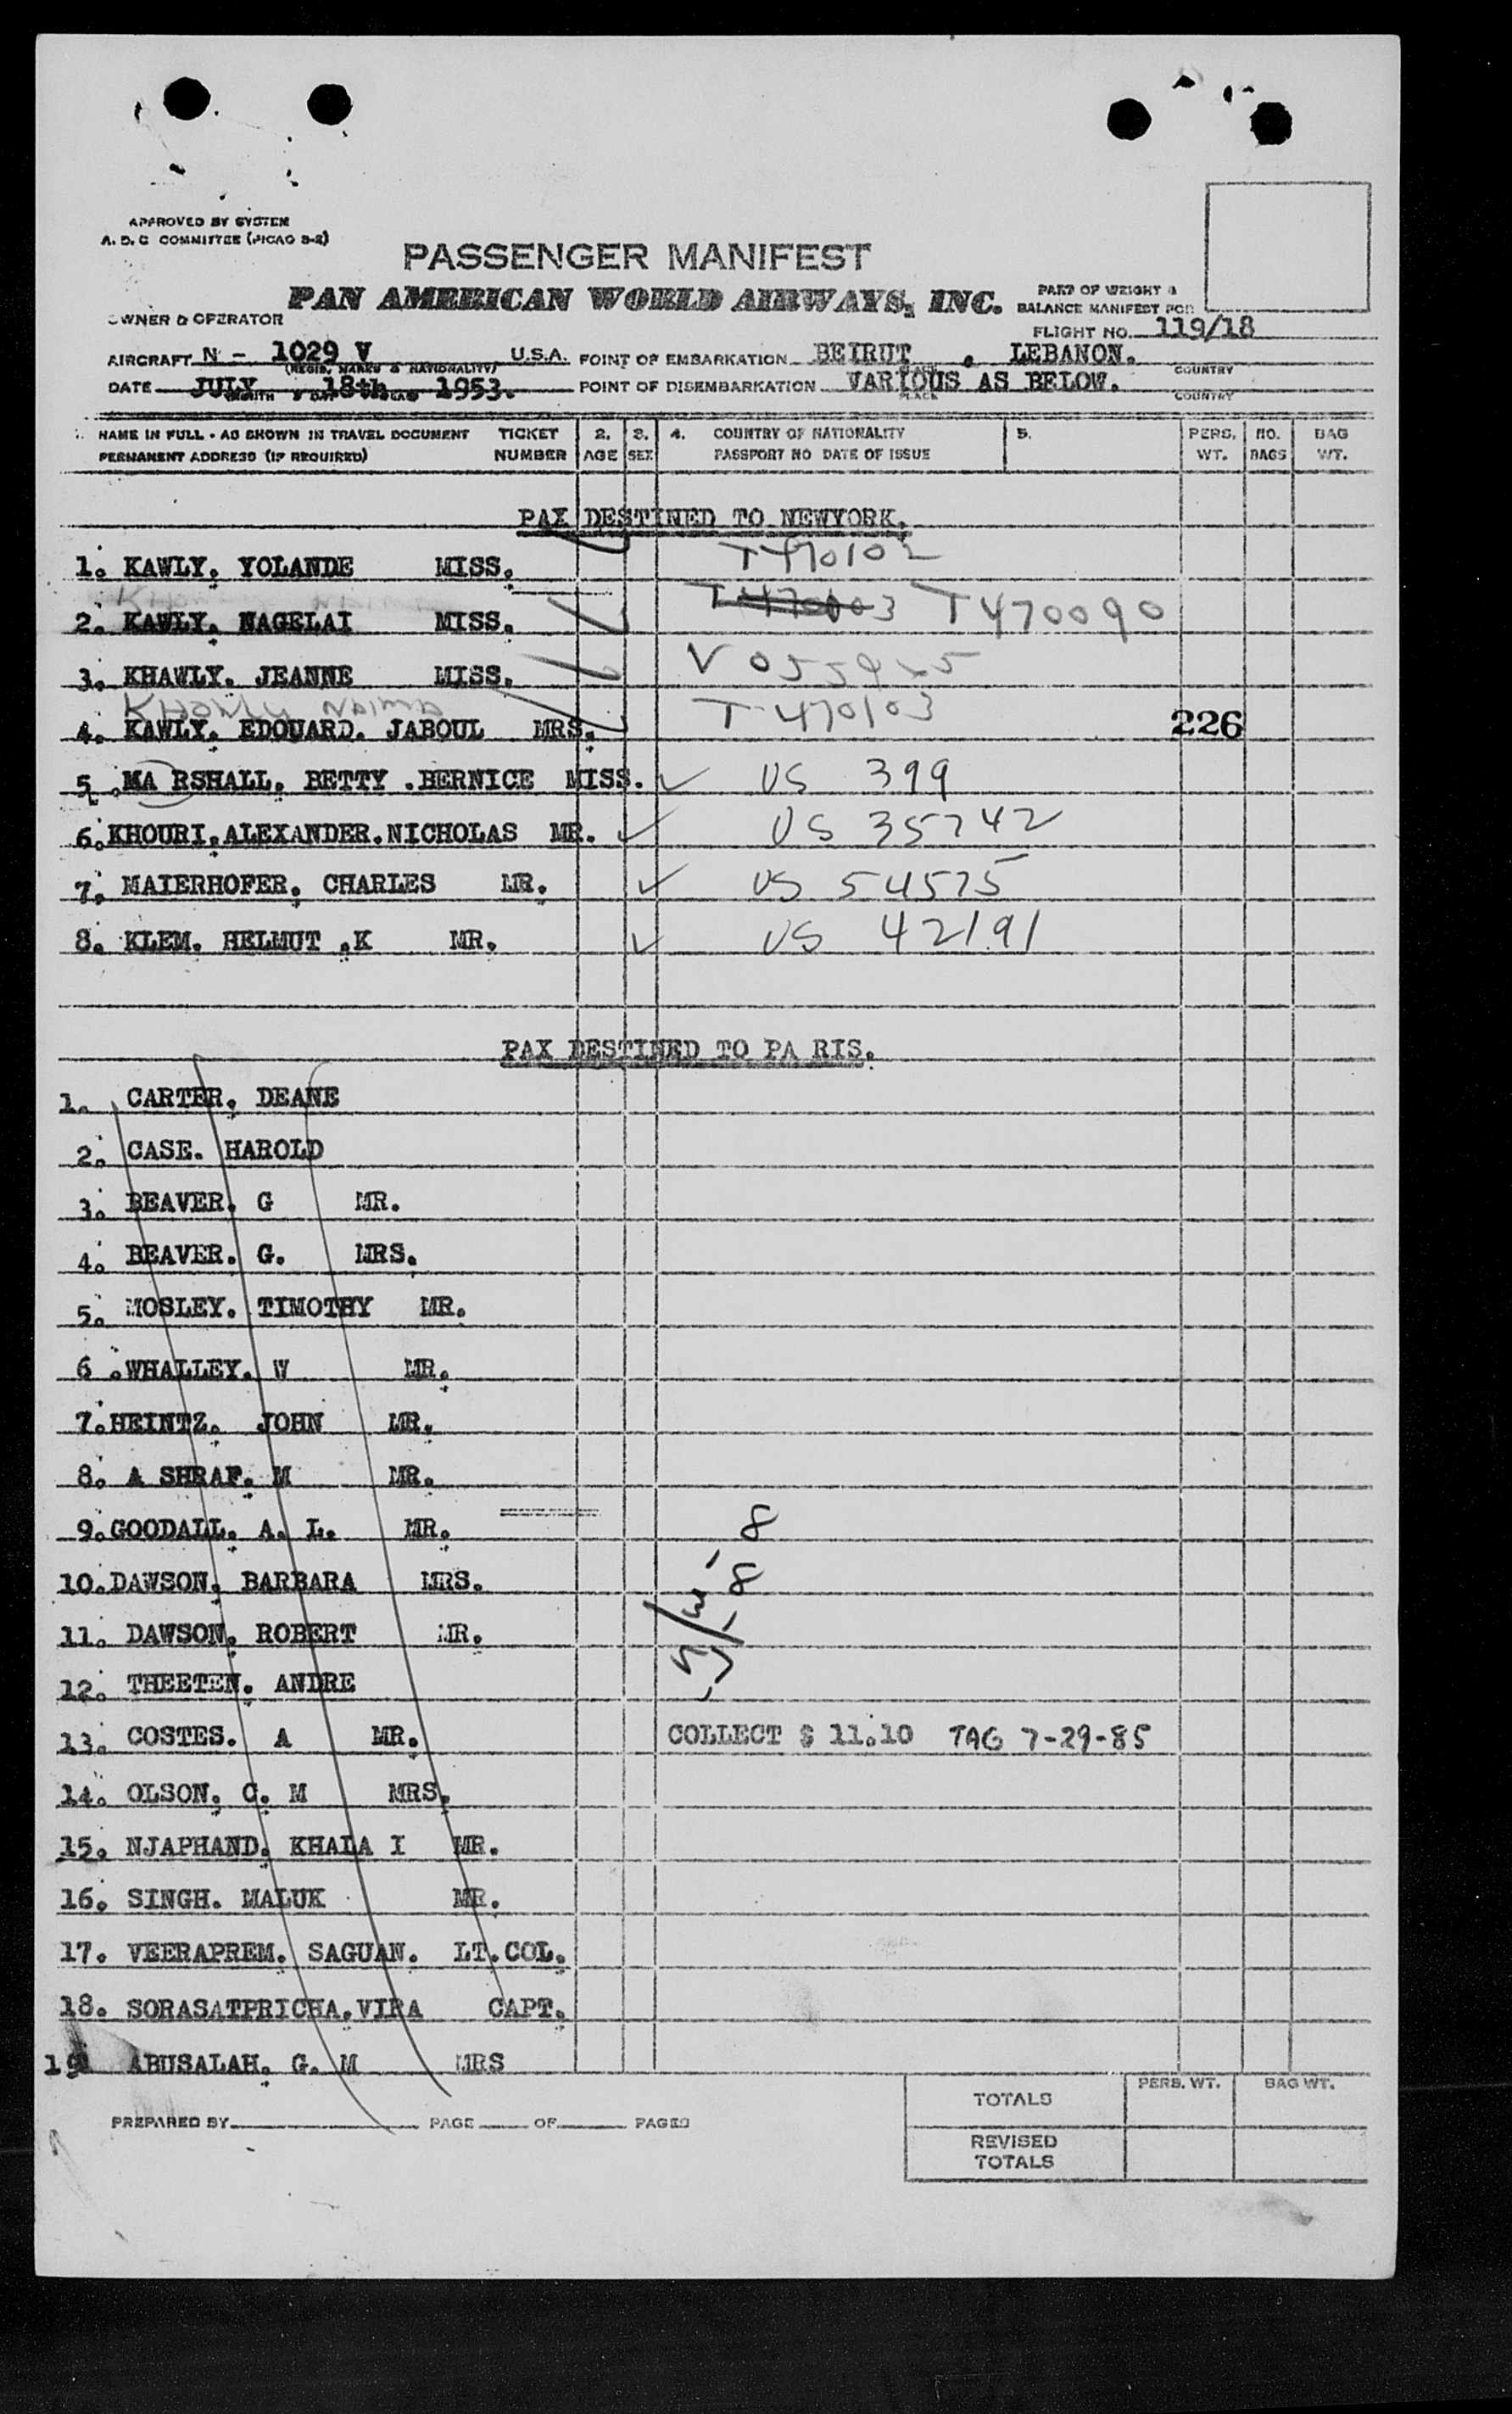 APPROVED BY SYSTEM
A. D. C COMMITTEE (PICAO S-2)
PASSENGER MANIFEST
PAN AMERICAN WORLD AIRWAYS, INC.
PART OF WEIGHT &
BALANCE MANIFEST FOR
OWNER & OPERATOR
FLIGHT NO. 119/18
AIRCRAFT N - 1029 V U.S.A. POINT OF EMBARKATION BEIRUT . LEBANON.
(REGIS. MARKS & NATIONALITY) PLACE COUNTRY
DATE JULY 18th 1953. POINT OF DISEMBARKATION VARIOUS AS BELOW.
PLACE COUNTRY
1. NAME IN FULL - AS SHOWN IN TRAVEL DOCUMENT TICKET 2. 3. 4. COUNTRY OF NATIONALITY 5. PERS. NO. BAG
PERMANENT ADDRESS (IF REQUIRED) NUMBER AGE SEX PASSPORT NO DATE OF ISSUE WT. BAGS WT.
PAX DESTINED TO NEWYORK.
1. KAWLY. YOLANDE MISS. T470102
2. KAWLY. NAGELAI MISS. T470103 T470090
3. KHAWLY. JEANNE MISS.
KHAWLY NAIMA
4. KAWLY. EDOUARD. JABOUL MRS. T470103
226
5 .MA RSHALL. BETTY .BERNICE MISS. ✓ US 399
6.KHOURI.ALEXANDER.NICHOLAS MR. ✓ US 35742
7. MAIERHOFER. CHARLES MR. ✓ US 54575
8. KLEM. HELMUT .K MR. ✓ US 42191
PAX DESTINED TO PA RIS.
1. CARTER. DEANE
2. CASE. HAROLD
3. BEAVER. G MR.
4. BEAVER. G. MRS.
5. MOSLEY. TIMOTHY MR.
6 .WHALLEY. W MR.
7.HEINTZ. JOHN MR.
8. A SHRAF. M MR.
9.GOODALL. A. L. MR.
10.DAWSON. BARBARA MRS.
11. DAWSON. ROBERT MR.
12. THEETEN. ANDRE
13. COSTES. A MR. COLLECT $ 11.10 TAG 7-29-85
14. OLSON. C. M MRS.
15. NJAPHAND. KHALA I MR.
16. SINGH. MALUK MR.
17. VEERAPREM. SAGUAN. LT.COL.
18. SORASATPRICHA.VIRA CAPT.
19 ABUSALAH. G. M MRS
PREPARED BY PAGE OF PAGES
TOTALS PERS. WT. BAG WT.
REVISED
TOTALS